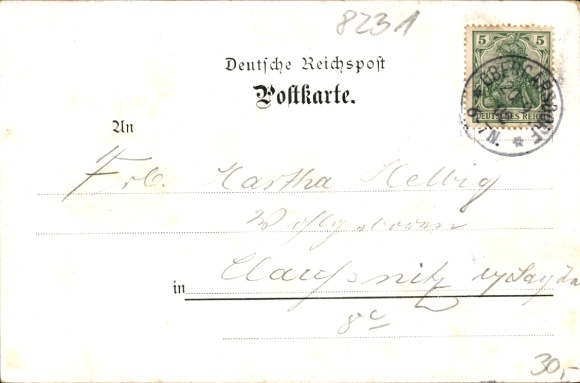 8231
Deutsche Reichspost
Postkarte.
5 5
DEUTSCHES REICH
An
Frl. Martha Helbig
Wohlgeboren
in Claußnitz b/Sayda
30,-